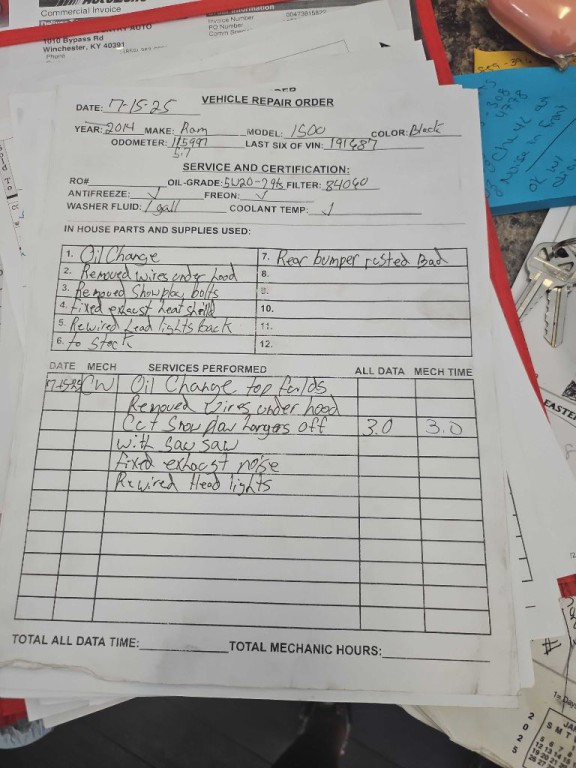 Commercial Invoice
Invoice Number
PO Number
1010 Bypass Rd
Winchester, KY 40391
Phone
VEHICLE REPAIR ORDER
DATE: 7-15-25
YEAR: 2014 MAKE: Ram MODEL: 1500 COLOR: Black
ODOMETER: 115997 LAST SIX OF VIN: 191687
5.7
SERVICE AND CERTIFICATION:
RO# OIL-GRADE: 5W20-7qts FILTER: 84040
ANTIFREEZE: ✓ FREON: ✓
WASHER FLUID: 1 gall COOLANT TEMP: ✓
IN HOUSE PARTS AND SUPPLIES USED:
1. Oil Change 7. Rear bumper rusted Bad
2. Removed wires under hood 8.
3. Removed Snowplow bolts 9.
4. Fixed exhaust heat shield 10.
5. Rewired head lights back 11.
6. to stock 12.
DATE MECH SERVICES PERFORMED ALL DATA MECH TIME
7-15-25 CW Oil Change top fulds
Removed wires under hood
Cut Snow plow hangers off 3.0 3.0
with saw saw
fixed exhaust noise
Rewired Head lights
TOTAL ALL DATA TIME: TOTAL MECHANIC HOURS:
EASTE
2025
S M T